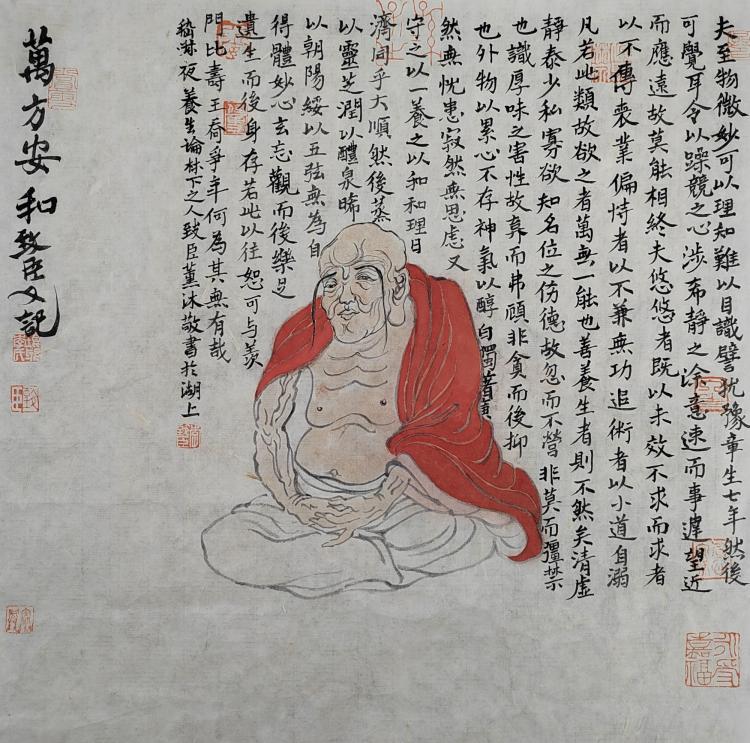 夫至物微妙可以理知難以目識譬犹豫章生七年然後
可覺耳令以躁競之心涉希靜之塗意速而事遲望近
而應遠故莫能相終夫悠悠者既以未效不求而求者
以不傳喪業偏恃者以不兼無功追術者以小道自溺
凡若此類故欲之者萬無一能也善養生者則不然矣清虛
靜泰少私寡欲知名位之傷德故忽而不營非莫而彊禁
也識厚味之害性故棄而弗顧非貪而後抑
也外物以累心不存神氣以醇白獨著曠
然無忧患寂然無思慮又
守之以一養之以和和理日
濟同乎大順然後蒸
以靈芝潤以醴泉晞
以朝陽綏以五弦無為自
得體妙心玄忘觀而後樂足
遺生而後身存若此以往恕可与羨
門比壽王喬爭年何為其無有哉
嵇叔夜養生論林下之人致臣董沐敬書於湖上
萬方安和致臣又記
永受嘉福